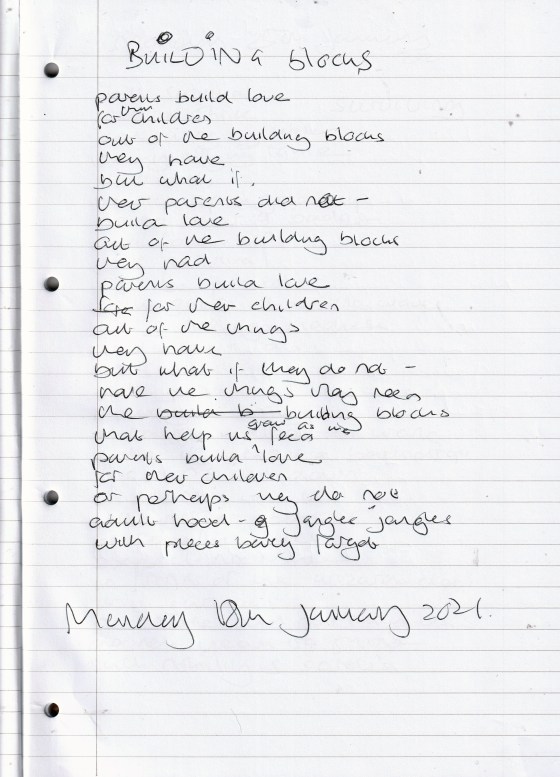 BUILDING blocks
parents build love
for their children
out of the building blocks
they have
but what if.
their parents did not -
build love
out of the building blocks
they had
parents build love
for for their children
out of the things
they have
but what if they do not -
have the things they need
the build b building blocks
that help us grow as we feed
parents build love
for their children
or perhaps they do not
adult hood - jangles
with pieces
Monday 18th January 2021.